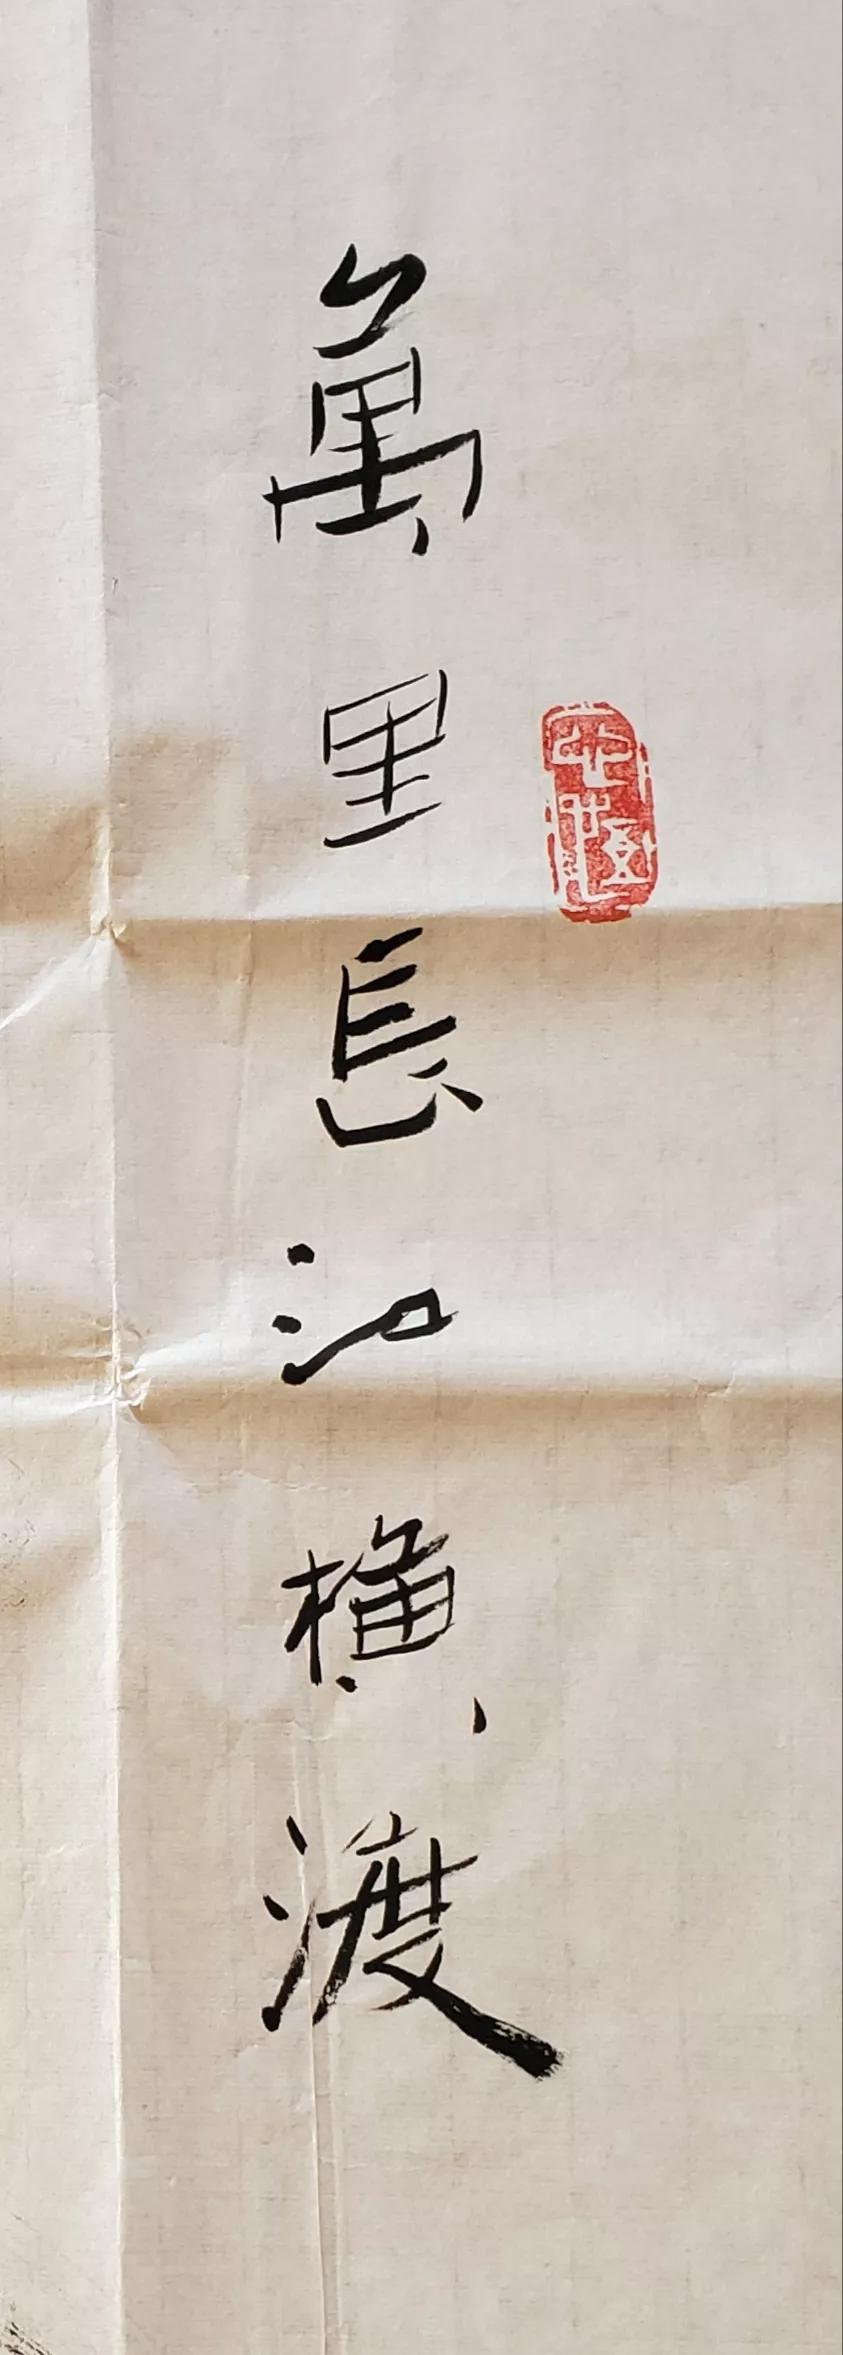 萬里長江橫渡